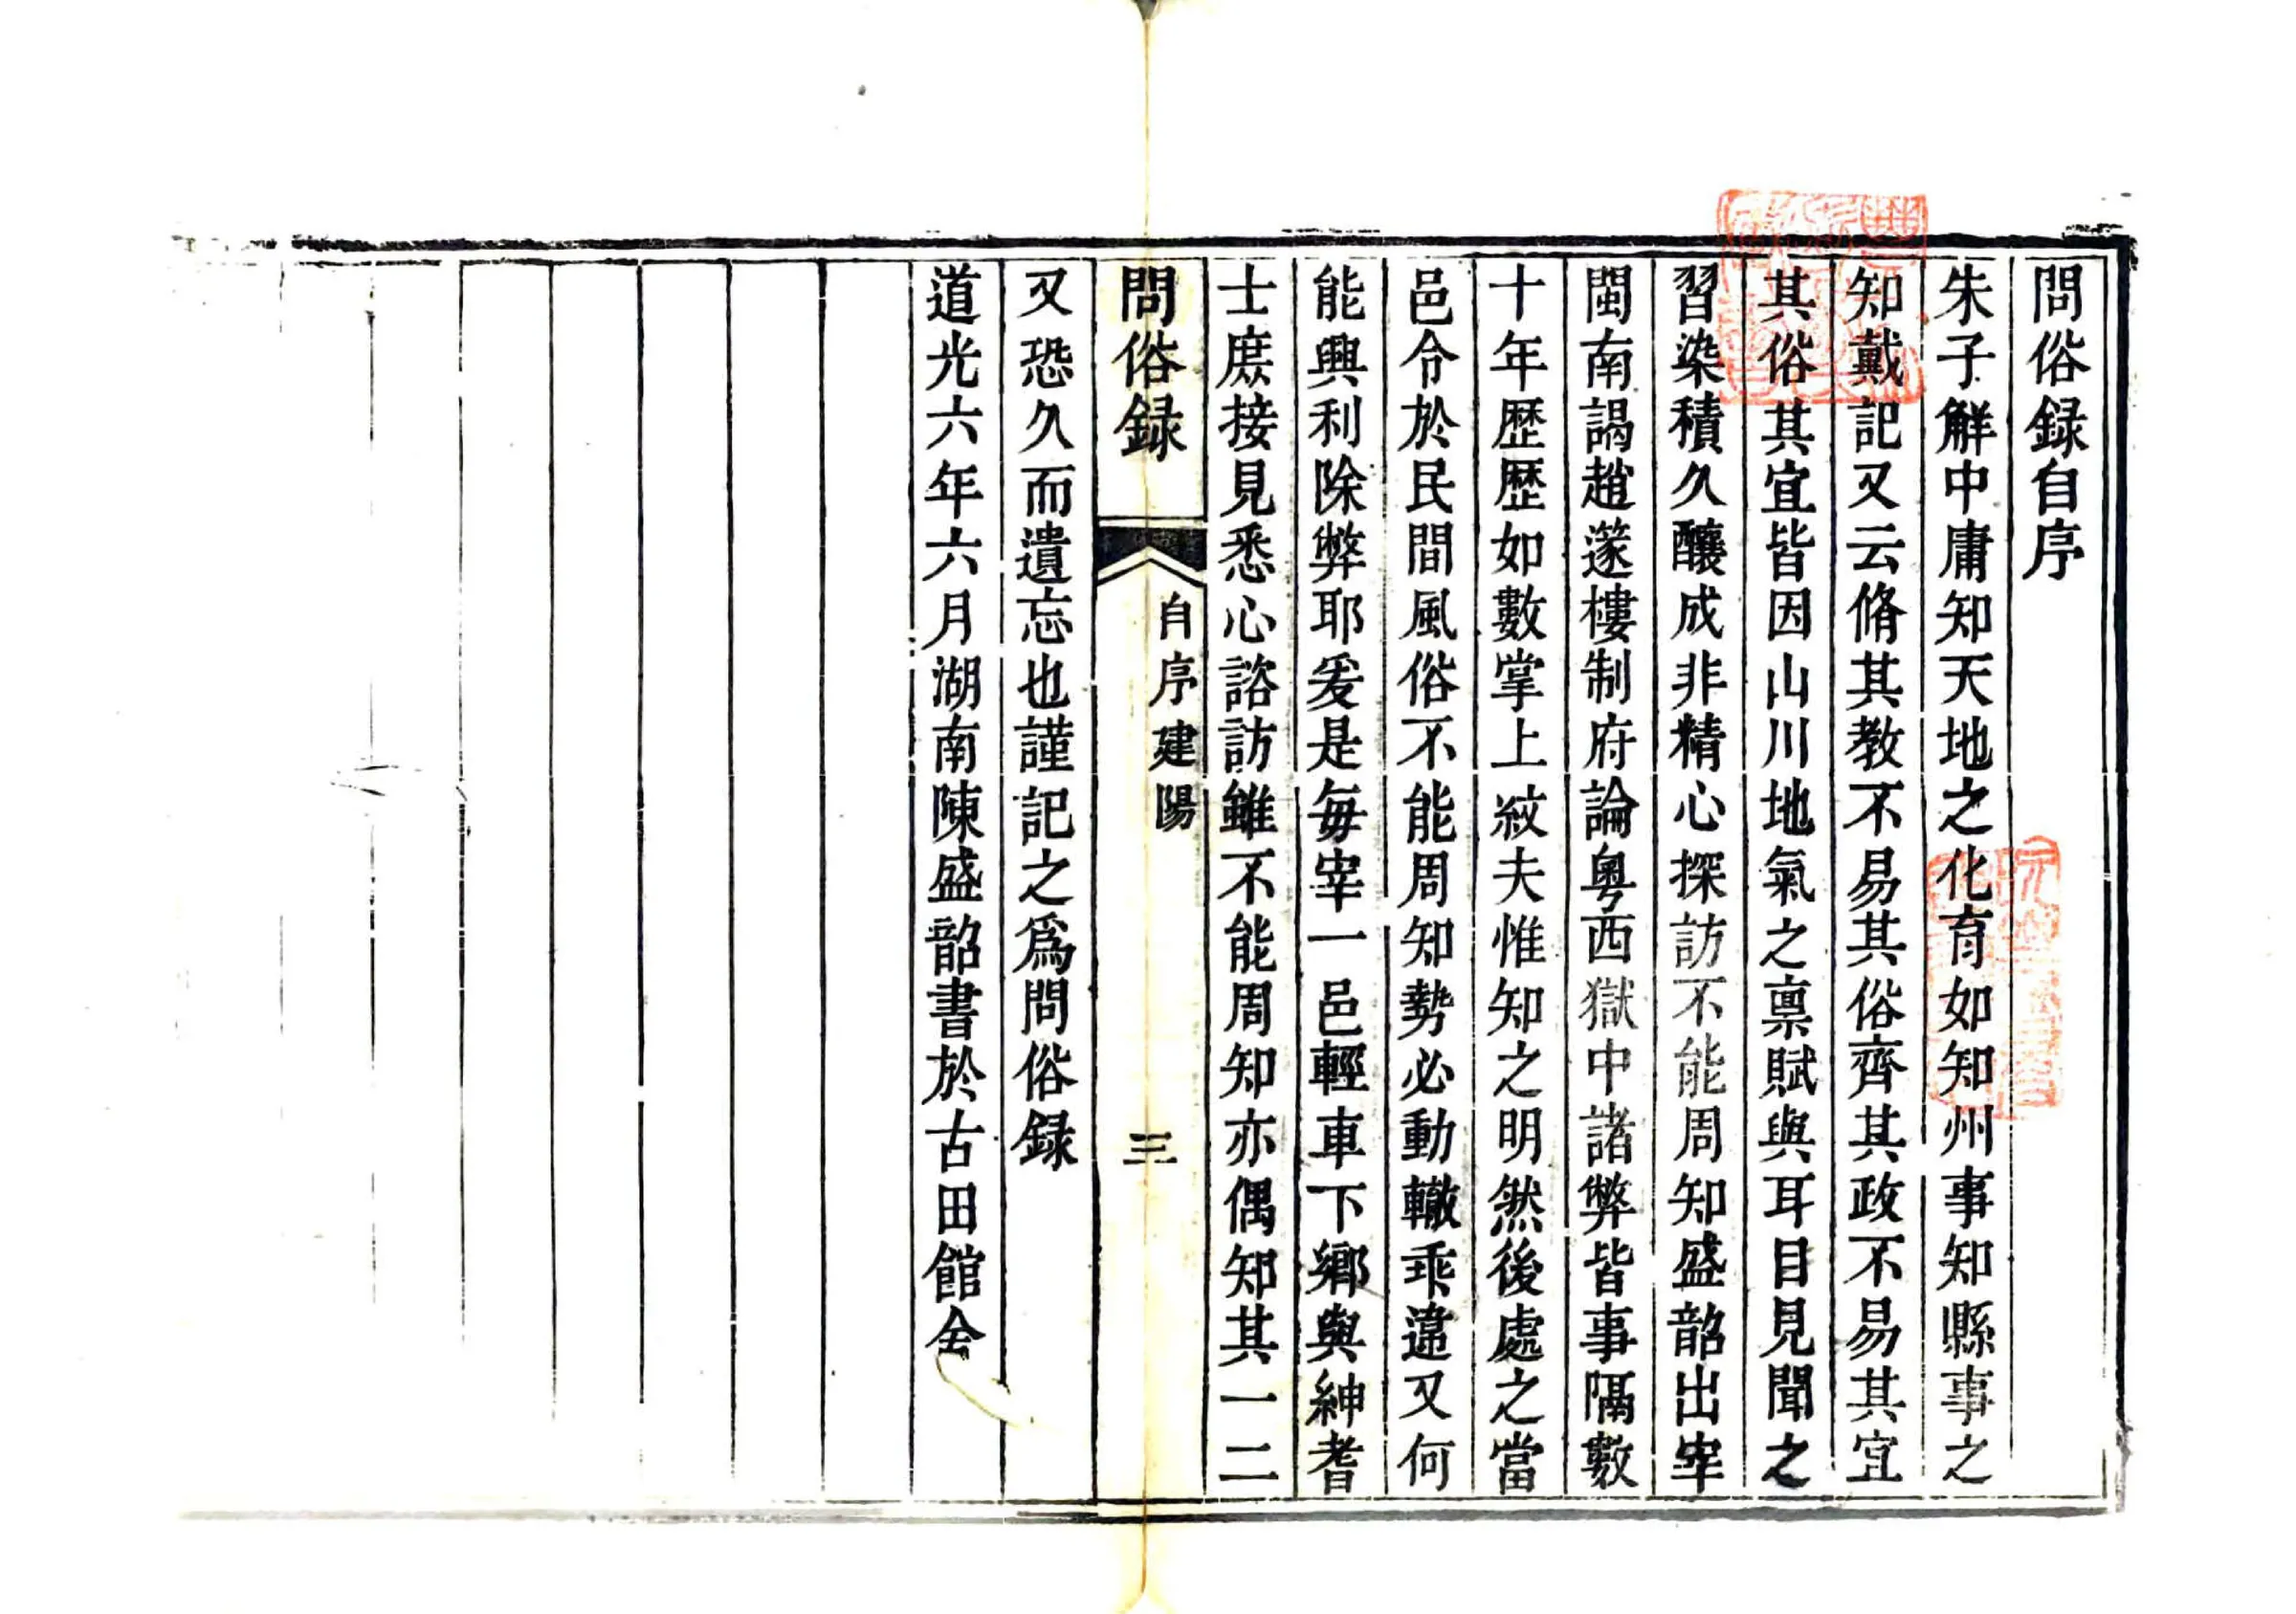 問俗録自序
朱子解中庸知天地之化育如知州事知縣事之
知戴記又云脩其教不易其俗齊其政不易其宜
其俗其宜皆因山川地氣之禀賦與耳目見聞之
習染積久釀成非精心探訪不能周知盛韶出宰
閩南謁趙邃樓制府論粵西獄中諸弊皆事隔數
十年歷歷如數掌上紋夫惟知之明然後處之當
邑令於民間風俗不能周知勢必動轍乖違又何
能興利除弊耶爰是每宰一邑輕車下鄉與紳耆
士庶接見悉心諮訪雖不能周知亦偶知其一二
問俗録
自序 建陽
三
又恐久而遺忘也謹記之為問俗録
道光六年六月湖南陳盛韶書於古田館舍